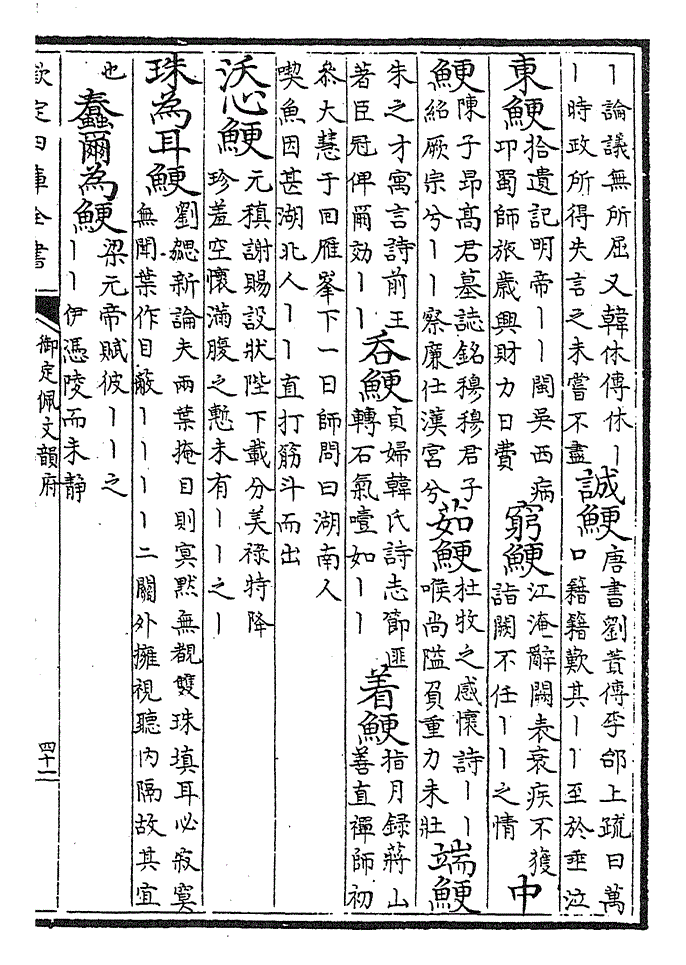 丨論議無所屈又韓休傳休丨
丨時政所得失言之未嘗不盡
誠鯁
唐書劉蕡傳李郃上疏曰萬
口籍籍歎其丨丨至於垂泣
東鯁
拾遺記明帝丨丨閩吳西病
卭蜀師旅歲興財力日費
窮鯁
江淹辭闕表衰疾不獲
詣闕不任丨丨之情
中
鯁
陳子昻髙君墓誌銘穆穆君子
紹厥宗兮丨丨察廉仕漢宫兮
茹鯁
杜牧之感懷詩丨丨
喉尚隘負重力未壯
端鯁
朱之才寓言詩前王
著臣冠俾爾効丨丨
呑鯁
貞婦韓氏詩志節匪
轉石氣噎如丨丨
着鯁
指月録蔣山
善直禪師初
叅大慧于回雁峯下一日師問曰湖南人
喫魚因甚湖北人丨丨直打筋斗而出
沃心鯁
元稹謝賜設狀陛下載分美禄特降
珍羞空懷滿腹之慙未有丨丨之丨
珠為耳鯁
劉勰新論夫兩葉掩目則冥黙無覩雙珠填耳必寂寞
無聞葉作目蔽丨丨丨丨二關外擁視聽内隔故其宜
也
蠢爾為鯁
梁元帝賦彼丨丨之
丨丨伊憑陵而未靜
欽定四庫全書
御定佩文韻府
四十一